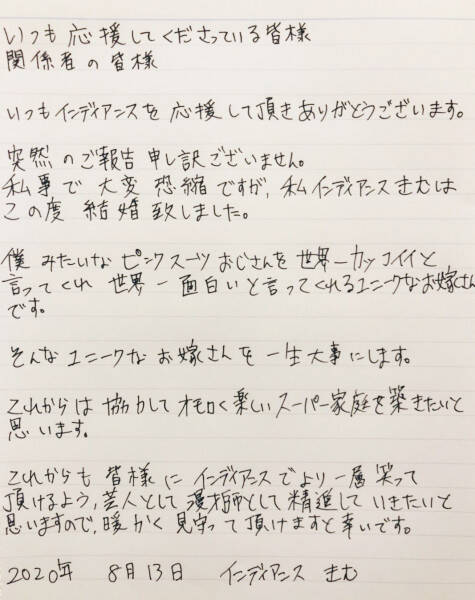 いつも応援してくださっている皆様
関係者の皆様
いつもインディアンスを応援して頂きありがとうございます。
突然のご報告申し訳ございません。
私事で大変恐縮ですが、私インディアンスきむは
この度結婚致しました。
僕みたいなピンクスーツおじさんを世界一カッコイイと
言ってくれ世界一面白いと言ってくれるユニークなお嫁さん
です。
そんなユニークなお嫁さんを一生大事にします。
これからは協力してオモロく楽しいスーパー家庭を築きたいと
思います。
これからも皆様にインディアンスでより一層笑って
頂けるよう、芸人として漫才師として精進していきたいと
思いますので、暖かく見守って頂けますと幸いです。
2020年 8月13日 インディアンス きむ